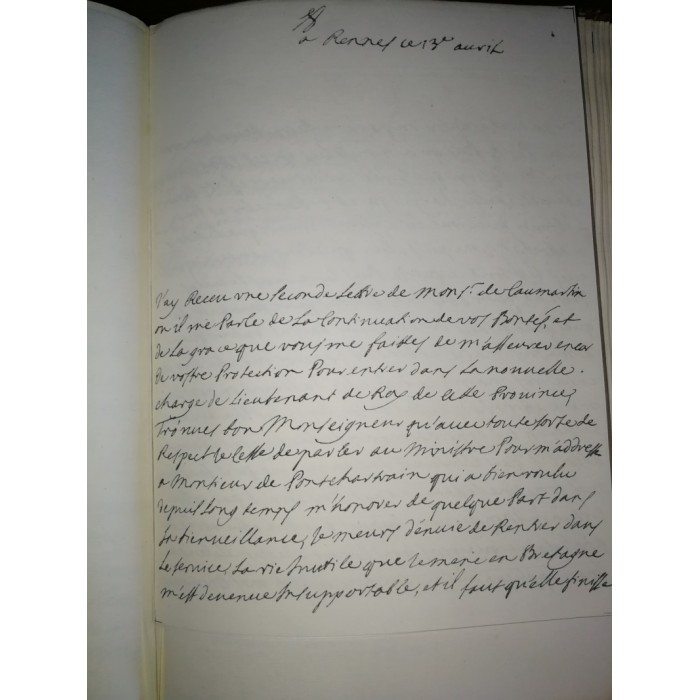 a Rennes ce 13e auril
J'ay Receu vne seconde Lettre de Monsr. de Caumartin
ou il me Parle de La Continuation de vos Bontés, et
de La grace que vous me faittes de m'asseurer encor
de vostre Protection Pour entrer dans La nouuelle
charge de Lieutenant de Roy de cette Province,
Trouues bon Monseigneur qu'auec toute sorte de
Respect Je Cesse de parler au Ministre Pour m'addresser
a Monsieur de Pontchartrain qui a bien voulu
depuis Long temps m'honorer de quelque Part dans
sa bienueillance, Je meurs d'enuie de Rentrer dans
Le seruice, La vie Inutile que Je mene en Bretagne
m'est deuenue Insupportable, et il faut qu'elle finisse